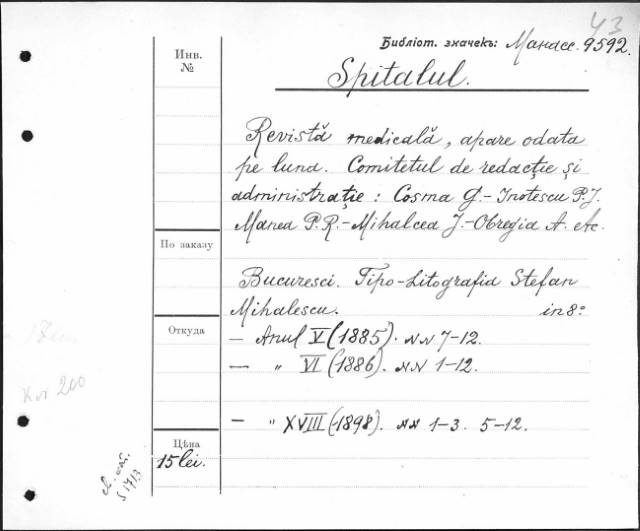 43
Библіот. значекъ: Манасс. 9592.
Инв.
№
Spitalul.
Revistă medicală, apare odata
pe luna. Comitetul de redacţie şi
administraţie: Cosma G.-Inotescu P.J.
Manea P.R.-Mihalcea J.-Obregia A. etc.
По заказу
Bucuresci. Tipo-Litografia Stefan
Mihalescu. in 8º
Откуда
— Anul V (1885). NN 7-12.
— " VI (1886). NN 1-12.
— " XVIII (1898). NN 1-3. 5-12.
Цѣна
15 lei.
200